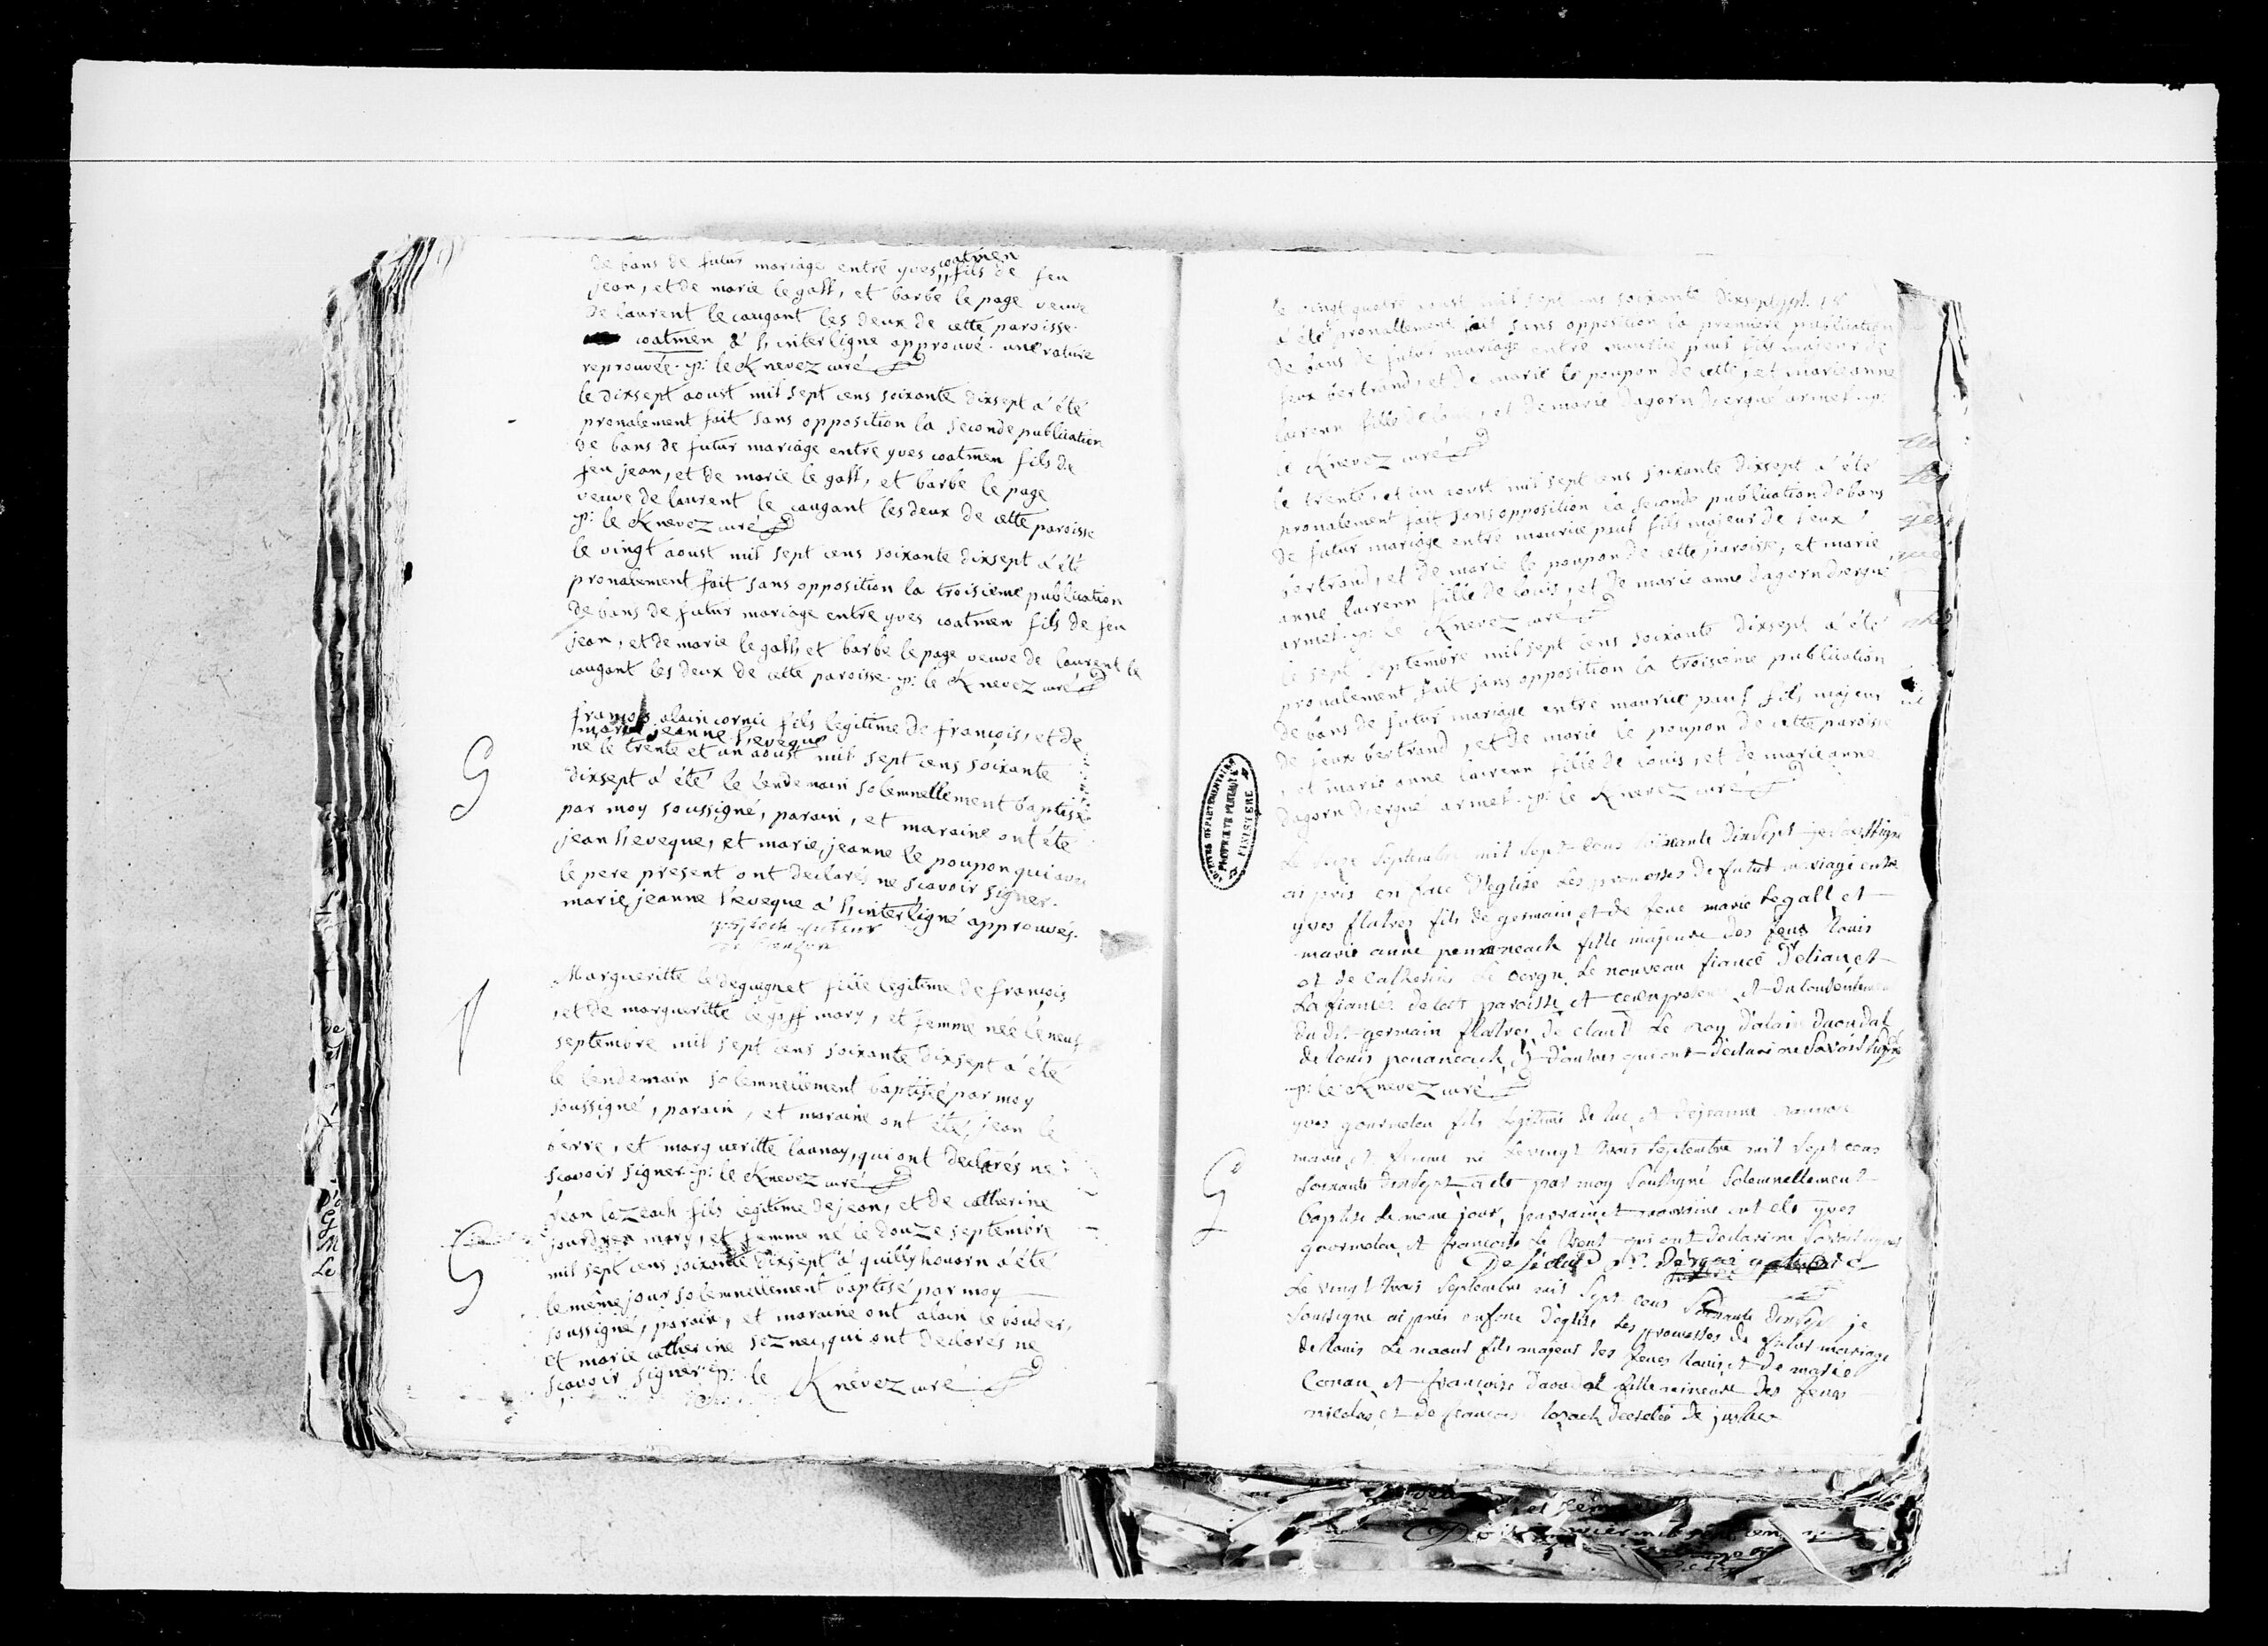 de bans de futur mariage entre yves coatmen fils de feu
jean, et de marie le gall, et barbe le page veuve
de laurent le caugant les deux de cette paroisse.
coatmen à l'interligne approuvé. une rature
reprouvée. p: le Knevez curé
le dixsept aoust mil sept cens soixante dixsept a été
pronalement fait sans opposition la seconde publication
de bans de futur mariage entre yves coatmen fils de
feu jean, et de marie le gall, et barbe le page
veuve de laurent le caugant les deux de cette paroisse
p: le Knevez curé
le vingt aoust mil sept cens soixante dixsept a été
pronalement fait sans opposition la troisieme publication
de bans de futur mariage entre yves coatmen fils de feu
jean, et de marie le gall, et barbe le page veuve de laurent le
caugant les deux de cette paroisse. p: le Knevez curé
françois alain cornic fils legitime de françois, et de
marie jeanne l'eveque
né le trente et un aoust mil sept cens soixante
dixsept a été le lendemain solemnellement baptisé
G
par moy soussigné, parain, et maraine ont été
jean l'eveque, et marie jeanne le poupon qui avec
le pere present ont declarés ne scavoir signer.
marie jeanne l'eveque à l'interligné approuvés.
Margueritte le deguignet fille legitime de françois
et de margueritte le goff mary, et femme née le neuf
septembre mil sept cens soixante dixsept a été
le lendemain solemnellement baptisée par moy
soussigné, parain, et maraine ont été, jean le
berre, et margueritte launay, qui ont declarés ne
scavoir signer. p: le Knevez curé
jean lozeach fils legitime de jean, et de catherine
jourdren mary, et femme né le douze septembre
G
mil sept cens soixante dixsept à quillyhouarn a été
le même jour solemnellement baptisé par moy
soussigné, parain, et maraine ont alain le bouder,
et marie catherine seznec, qui ont declarés ne
scavoir signer. p: le Knevez curé
le vingt quatre aoust mil sept cens soixante dixsept
a été pronallement fait sans opposition la premiere publication
de bans de futur mariage entre maurice paul fils majeur de
feux bertrand, et de marie le poupon de cette, et marie anne
fille de louis, et de marie dagorn d'ergué armel. p:
le Knevez curé
le trente, et un aoust mil sept cens soixante dixsept a été
pronalement fait sans opposition la seconde publication de bans
de futur mariage entre maurice paul fils majeur de feux
bertrand, et de marie le poupon de cette paroisse, et marie
anne fille de louis, et de marie anne dagorn d'ergué
armel. p: le Knevez curé
le sept septembre mil sept cens soixante dixsept a été
pronalement fait sans opposition la troisieme publication
de bans de futur mariage entre maurice paul fils majeur
de feux bertrand, et de marie le poupon de cette paroisse
, et marie anne fille de louis, et de marie anne
dagorn d'ergué armel. p: le Knevez curé
Le septembre mil sept cens soixante dixsept je soussigné
ai pris en face d'eglise les promesses de futur mariage entre
yves flatres fils de germain et de feue marie Legall et
marie anne penaneach fille majeure des feus Louis
et de Catherine Le Le nouveau fiancé d'eliant et
La fiancée de cette paroisse et en presence et du Consentement
du dt. germain flatres de Claud Le Roy d'alain daoudal
de louis penaneach et d'autres qui ont declaré ne Savoir Signer
p: le Knevez curé
yves gourmelen fils legitime de luc et de jeanne
G
mary et femme né Le vingt trois septembre mil Sept cens
soixante dixsept a été par moy Soussigné Solemnellement
baptisé Le meme jour, parrain et marraine ont été yves
gourmelen et françoise Le qui ont declaré ne Savoir signer
Le vingt trois septembre mil Sept cens Soixante dixsept je
Soussigné ai pris en face d'eglise Les promesses de futur mariage
de Louis Le naour fils majeur des feues Louis et de marie
Conan et françoise daoudal fille mineure des feues
nicolas et de françoise lozach decretés de justice